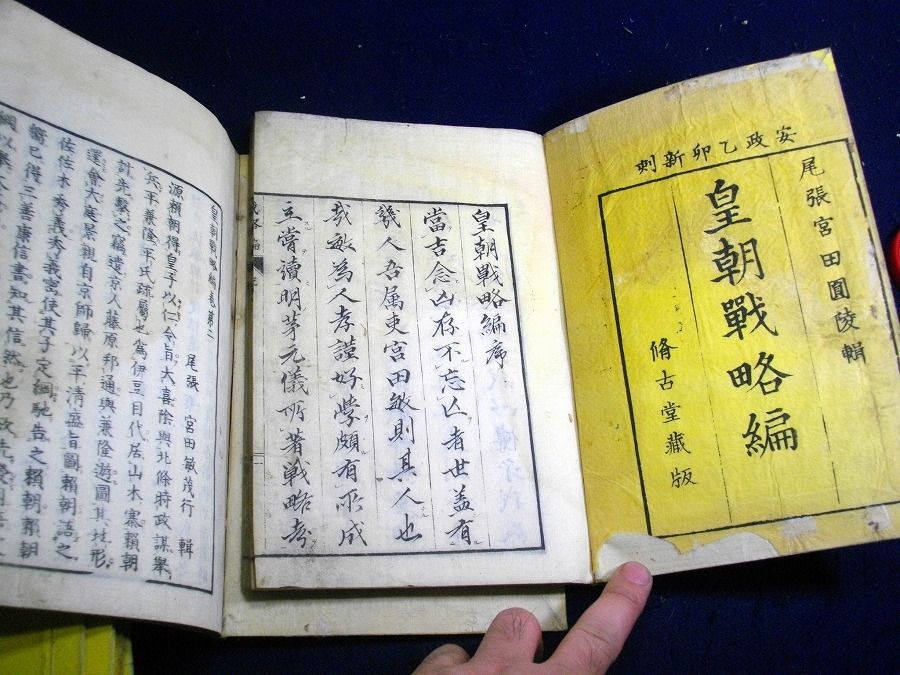 安政乙卯新刻
尾張宮田圓陵輯
皇朝戰略編
脩古堂藏版
皇朝戰略編序
當吉念凶存不忘亡者世盖有
幾人吾属吏宮田敏則其人也
哉敏為人孝謹好學頗有所成
立嘗讀明茅元儀所著戰略考
皇朝戰略編卷之二
尾張 宮田敏茂行 輯
源賴朝得皇子以仁令旨大喜陰與北條時政謀擧
兵平兼隆平氏疏屬也爲伊豆目代居山木寨賴朝
計先擊之竊遣京人藤原邦通與兼隆遊圖其地形
還會大庭景親自京師歸以平淸盛旨圖賴朝語之
佐佐木秀義秀義密使其子定綱馳告之賴朝賴朝
嘗已得三善康信書知其信然也乃